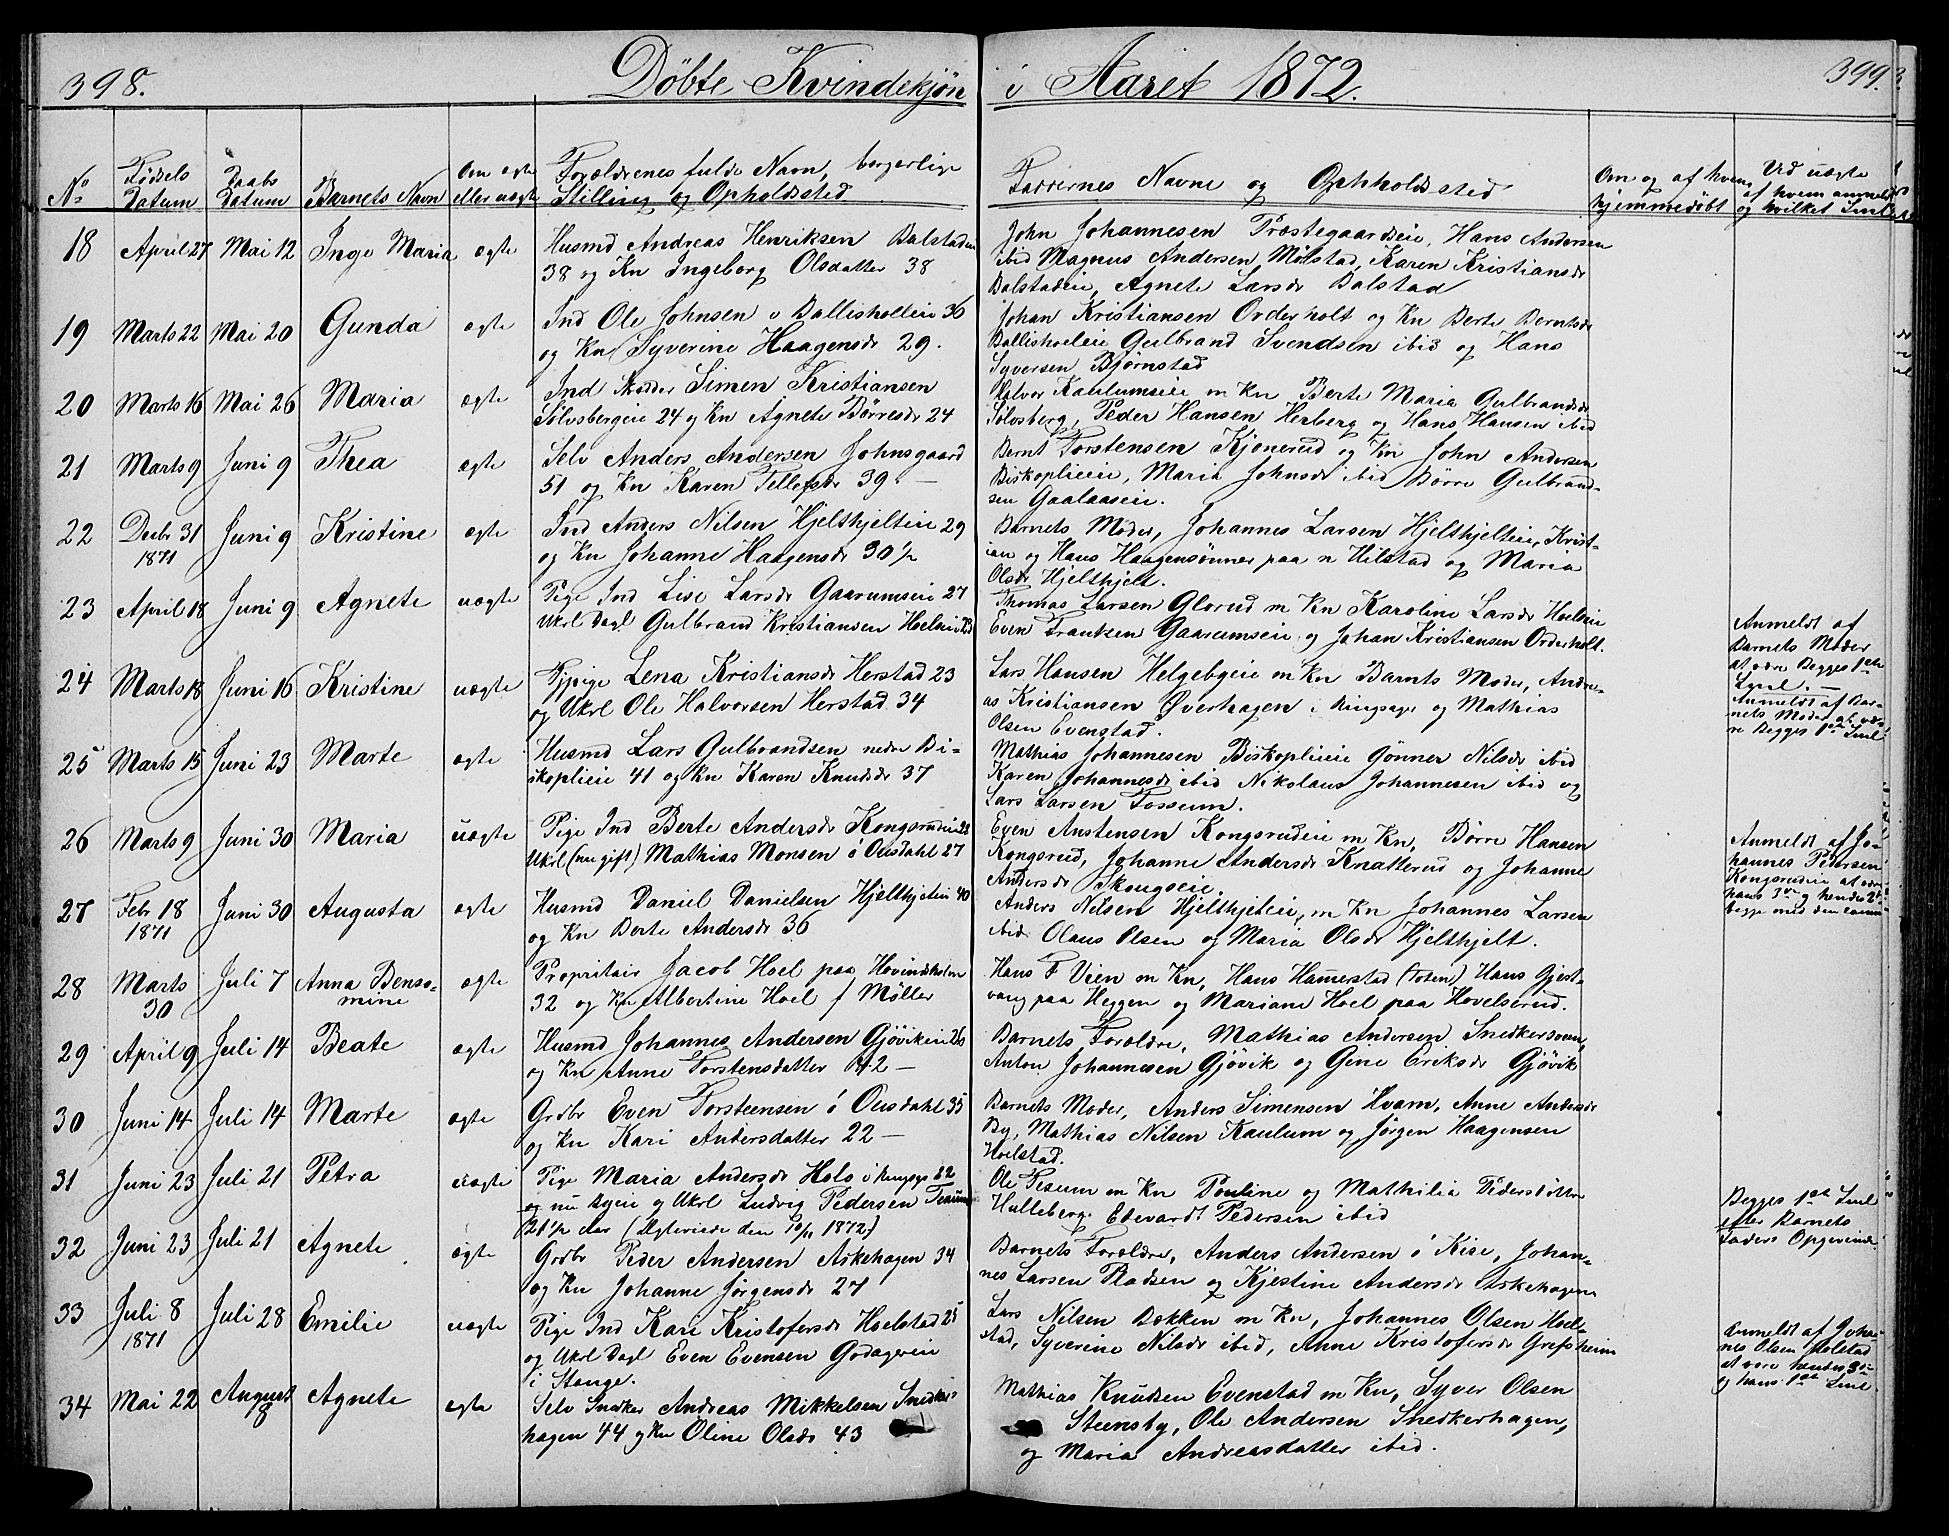 398. Döbte Kvindekjön i Aaret 1872. 399.
No Födsels Datum Daabs Datum Barnets Navn Om ægte eller uægte Forældrenes fulde Navn, borgerlige Stilling og Opholdssted Faddernes Navne og Opholdssted Om og af hvem hjemmedöbt Ved uægte af hvem anmeldt og hvilket Leiel
18 April 27 Mai 12 Inge Maria ægte Husmd Andreas Henriksen Balstadeie
38 og Kn Ingeborg Olsdatter 38
John Johannesen Præstegaardseie, Hans Andersen
ibid Magnus Andersen Mölstad, Karen Kristiansdr
Balstadeie, Agnete Larsdr Balstad
19 Marts 22 Mai 20 Gunda ægte Ind Ole Johnsen v Ballisholleie 36
og Kn Syverine Haagensdr 29.
Johan Kristiansen Orderholt og Kn Berte Berntsdr
Ballishoeleie Gulbrand Svendsen ibid og Hans
Syversen Björnstad
20 Marts 16 Mai 26 Maria ægte Ind Skrædder Simen Kristiansen
Sölvsbergeie 24 og Kn Agnete Börresdr 24
Halvor Kaulumseie m Kn Berte Maria Gulbrandsdr
Sölvsberg, Peder Hansen Herberg og Hans Hansen ibid
21 Marts 9 Juni 9 Thea ægte Selv Anders Andersen Johnsgaard
51 og Kn Karen Tellefsdr 39 —
Bernt Torstensen Kjonerud og Kn John Andersen
Biskoplieie, Maria Johnsdr ibid Börre Gulbrand-
sen Gaalaaseie.
22 Decbr 31 1871 Juni 9 Kristine ægte Ind Anders Nilsen Hjelthjelteie 29
og Kn Johanne Haagensdr 30½
Barnets Moder, Johannes Larsen Hjelthjelteie, Krist-
ian og Hans Haagensönner paa n Hilstad og Maria
Olsdr Hjelthjelt.
23 April 18 Juni 9 Agnete uægte Pige Ind Lise Larsdr Gaarumseie 27
Ukrl Dagl Gulbrand Kristiansen Hoelseie 23
Thomas Larsen Glorud m Kn Karoline Larsdr Hoelseie
Even Frantzen Gaarumseie og Johan Kristiansen Orderholt.
Anmeldt af
Barnets Moder
at være Begges 1ste
Leiel. —
24 Marts 18 Juni 16 Kristine uægte Tjpige Lena Kristiansdr Herstad 23
og Ukrl Ole Halvorsen Herstad 34
Lars Hansen Helgebyeie m Kn Barnts Moder, Andre-
as Kristiansen Överhagen i Ringsager og Mathias
Olsen Evenstad.
Anmeldt af Bar-
nets Moder at væ-
re Begges 1ste Leiel
25 Marts 15 Juni 23 Marte ægte Husmd Lars Gulbrandsen nedre Bi-
skoplieie 41 og Kn Karen Knudsdr 37
Mathias Johannesen Biskoplieie Gönner Nilsdr ibid
Karen Johannesdr ibid Nikolaus Johannesen ibid og
Lars Larsen Fosseum.
26 Marts 9 Juni 30 Maria uægte Pige Ind Berte Andersdr Kongsrudeie 28
Ukrl (nu gift) Mathias Monsen ö Ousdahl 27
Even Austensen Kongsrudeie m Kn, Börre Hansen
Kongsrud, Johanne Andersdr Knatterud og Johanne
Andersdr Skougseie.
Anmeldt af Jo-
hannes Pedersen
Kongsrudeie at være
hans 3die og hendes 2det
begge med den samme
27 Febr 18 1871 Juni 30 Augusta ægte Husmd Daniel Danielsen Hjelthjeteie 40
og Kn Berte Andersdr 36
Anders Nilsen Hjelthjeteie, m Kn Johannes Larsen
ibid Olaus Olsen og Maria Olsdr Hjelthjelt.
28 Marts 30 Juli 7 Anna Benso-
mine ægte Propritair Jacob Hoel paa Hovindsholm
32 og Kn Albertine Hoel f Möller
Hans F Veien m Kn, Hans Hamerstad (Toten) Hans Gjest-
vang paa Heggen og Mariane Hoel paa Hovelserud.
29 April 9 Juli 14 Beate ægte Husmd Johannes Andersen Gjövikeie 26
og Kn Anne Torstensdatter 42 —
Barnets Forældre, Mathias Andersen Snedkersveen,
Anton Johannesen Gjövik og Gine Eriksdr Gjövik
30 Juni 14 Juli 14 Marte ægte Grdbr Even Torsteensen ö Ousdahl 35
og Kn Kari Andersdatter 22 —
Barnets Moder, Anders Simensen Hvam, Anne Andersdr
By, Mathias Nilsen Kaulum og Jörgen Haagensen
Hoelstad.
31 Juni 23 Juli 21 Petra uægte Pige Maria Andersdr Holo i 22
og nu Byeie og Ukrl Ludvig Pedersen Teaum
21½ Aar (Ægteviede den 10/11 1872)
Ole Teseum m Kn Pouline og Mathilia Pedersdöttre
Hulleberg. Edevardt Pedersen ibid
Begges 1ste Leiel
efter Barnets
Faders Opgivende
32 Juni 23 Juli 21 Agnete ægte Grdbr Peder Andersen Askehagen 34
og Kn Johanne Jörgensdr 27
Barnets Forældre, Anders Andersen ö Kise, Johan-
nes Larsen Pladsen og Kjestine Andersdr Askehagen
33 Juli 8 1871 Juli 28 Emilie uægte Pige Ind Kari Kristofersdr Hoelstad 25
og Ukrl Dagl Even Evensen Godagereie
i Stange.
Lars Nilsen Bækken m Kn, Johannes Olsen Hoel-
stad, Syverine Nilsdr ibid, Anne Kristofersdr Grefsheim
Anmeldt af Joha-
nes Olsen Holstad
at være hendes 3die
og hans 1ste Leiel
34 Mai 22 August 18 Agnete ægte Selv Snedker Andreas Mikkelsen Snedker-
hagen 44 og Kn Oline Olsdr 43
Mathias Knudsen Evenstad m Kn, Syver Olsen
Steensby, Ole Andersen Snedkerhagen,
og Maria Andreasdatter ibid.